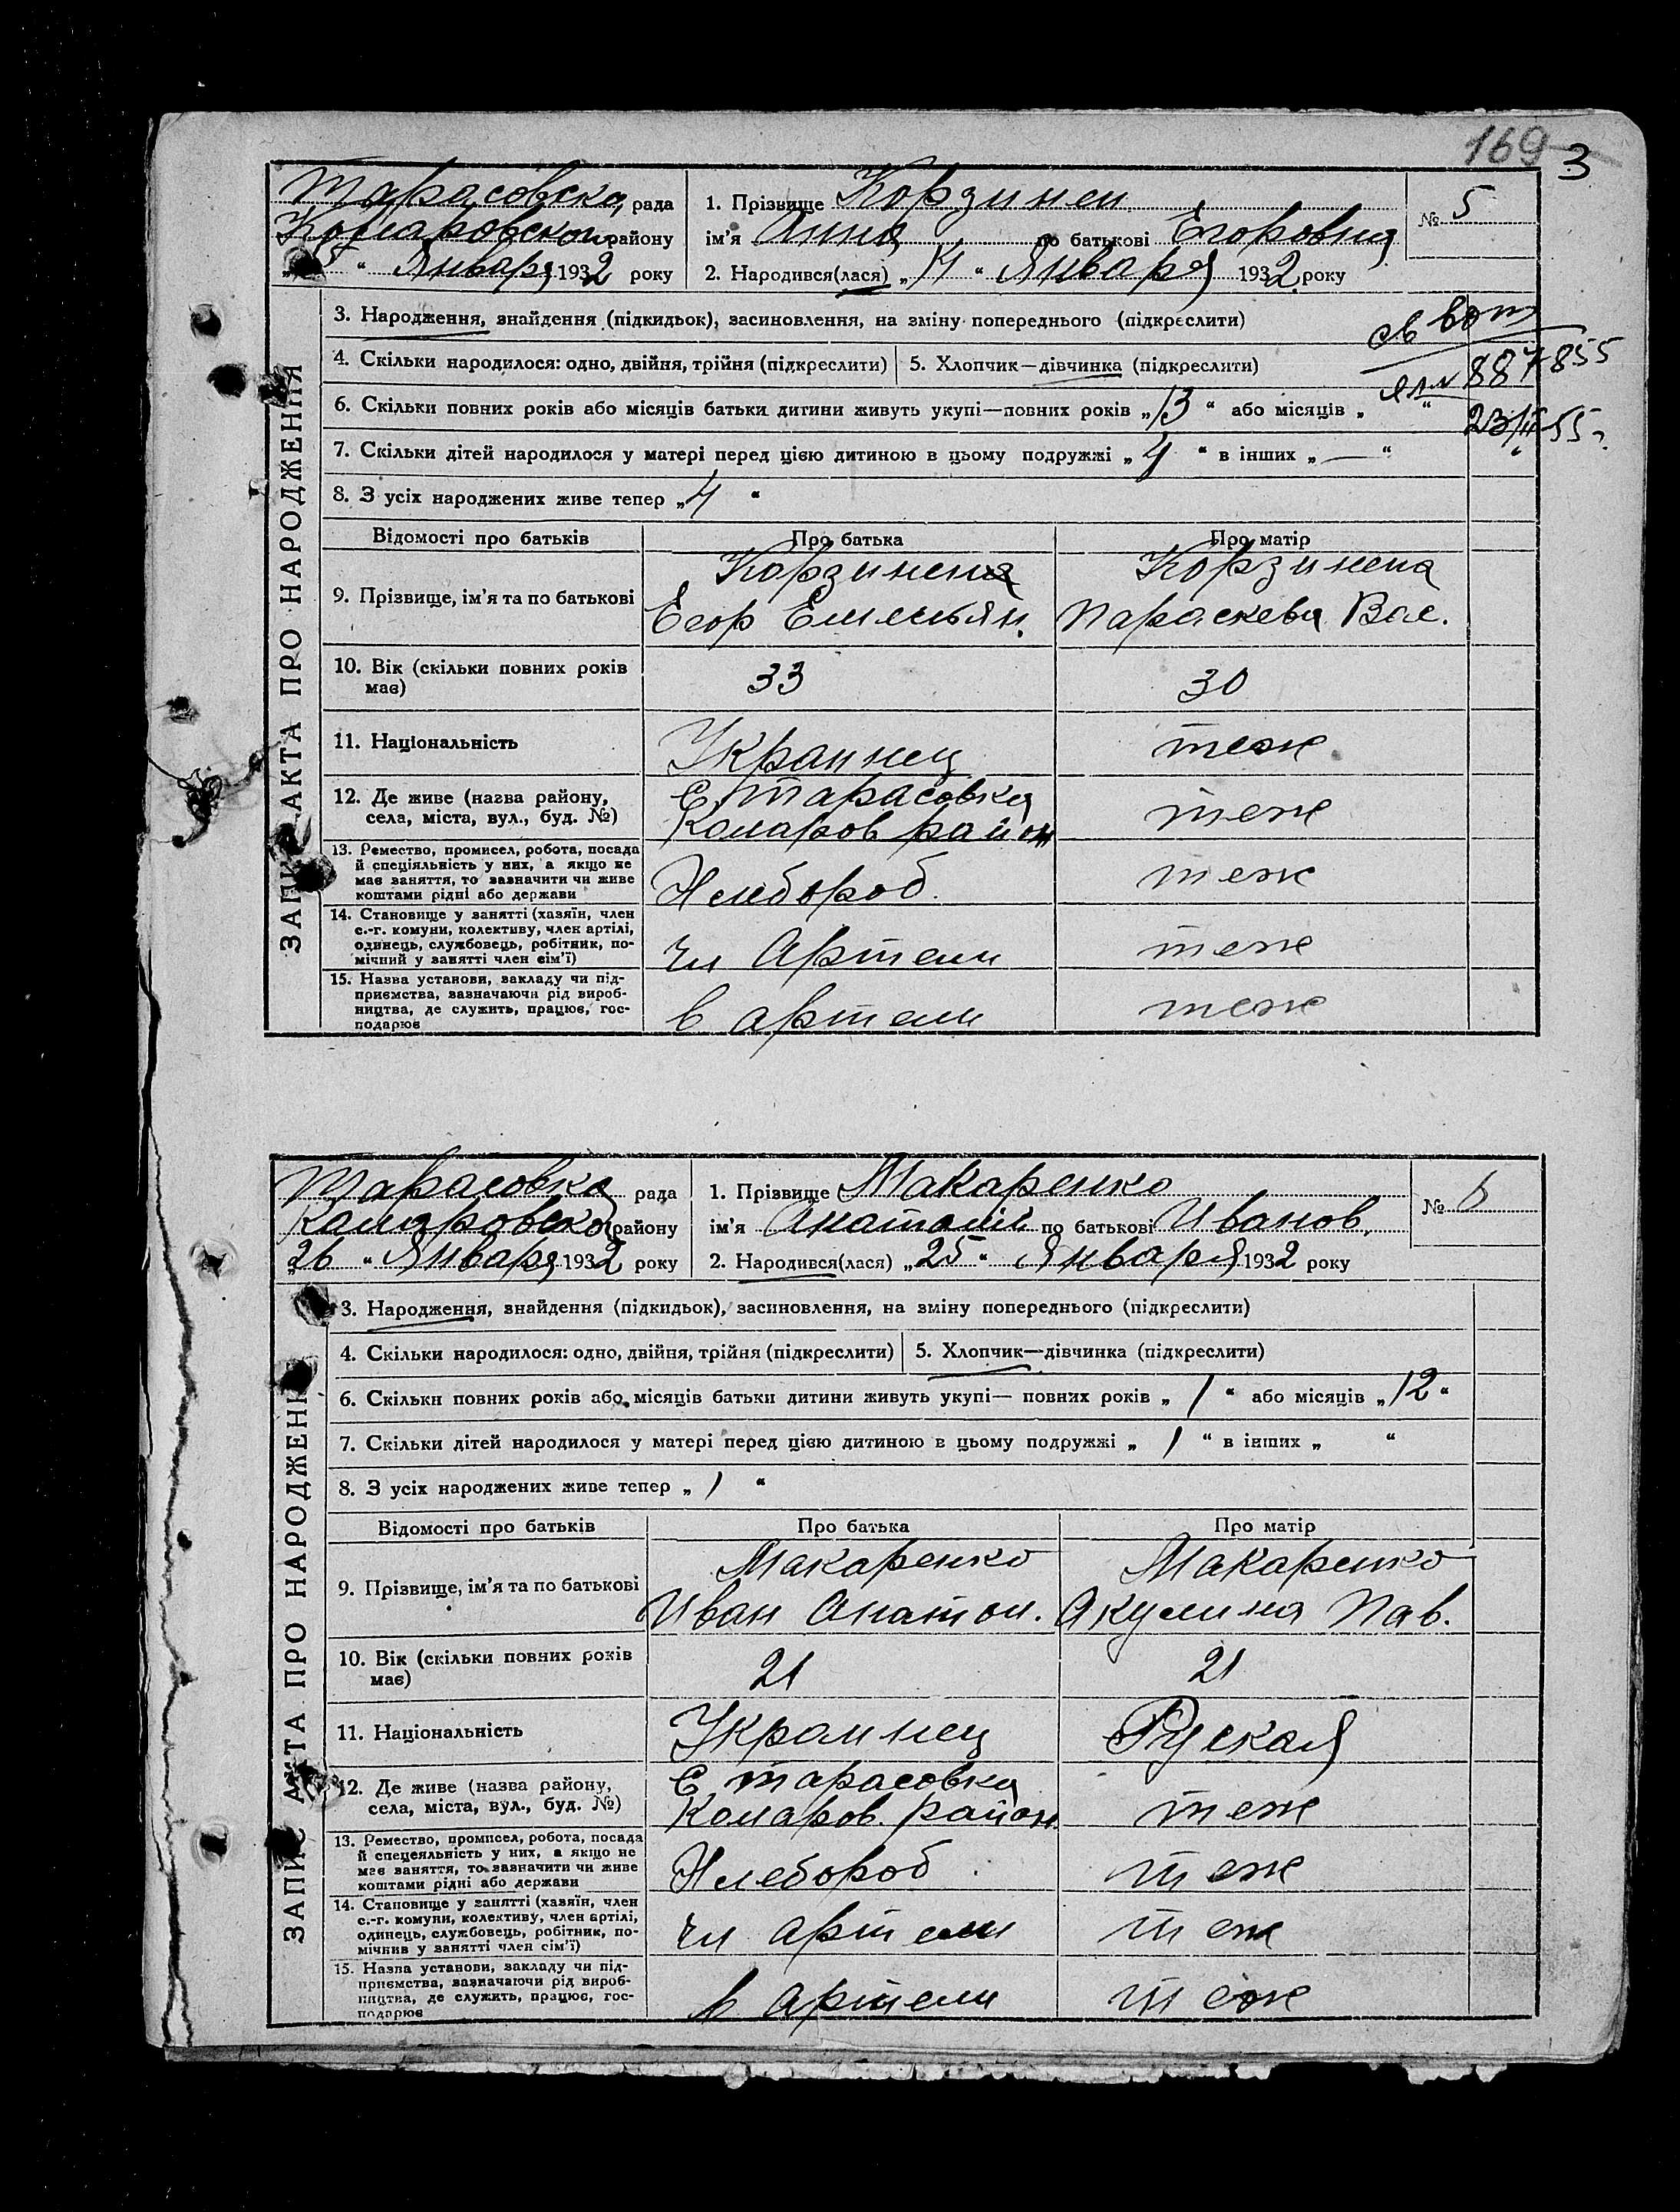 169 3
Тарасовска рада
Комаровском району
„ “ Января 1932 року
1. Прізвище Корзинен
ім'я Анна по батькові Егоровна
2. Народився(лася) „14“ Января 1932 року
№ 5
ЗАПИС АКТА ПРО НАРОДЖЕННЯ
3. Народження, знайдення (підкидьок), засиновлення, на зміну попереднього (підкреслити)
4. Скільки народилося: одно, двійня, трійня (підкреслити) 5. Хлопчик—дівчинка (підкреслити)
887855
6. Скільки повних років або місяців батьки дитини живуть укупі—повних років „13“ або місяців „ “
23/II 55
7. Скільки дітей народилося у матері перед цією дитиною в цьому подружжі „4“ в інших „—“
8. З усіх народжених живе тепер „4“
Відомості про батьків Про батька Про матір
9. Прізвище, ім'я та по батькові
Корзинена
Егор Емельян.
Корзинена
Параскева Вас.
10. Вік (скільки повних років
має)
33 30
11. Національність Украинец теж
12. Де живе (назва району,
села, міста, вул., буд. №)
С. Тарасовка
Комаров район
теж
13. Ремество, промисел, робота, посада
й спеціяльність у них, а якщо не
має заняття, то зазначити чи живе
коштами рідні або держави
Хлебороб. теж
14. Становище у занятті (хазяїн, член
с.-г. комуни, колективу, член артілі,
одинець, службовець, робітник, по-
мічний у занятті член сім'ї)
чл Артели теж
15. Назва установи, закладу чи під-
приємства, зазначаючи рід вироб-
ництва, де служить, працює, гос-
подарює
в артели теж
Тарасовка рада
Комаровског району
„26“ Января 1932 року
1. Прізвище Макаренко
ім'я Анатолій по батькові Иванов.
2. Народився(лася) „25“ Января 1932 року
№ 6
ЗАПИС АКТА ПРО НАРОДЖЕННЯ
3. Народження, знайдення (підкидьок), засиновлення, на зміну попереднього (підкреслити)
4. Скільки народилося: одно, двійня, трійня (підкреслити) 5. Хлопчик—дівчинка (підкреслити)
6. Скільки повних років або місяців батьки дитини живуть укупі— повних років „1“ або місяців „12“
7. Скільки дітей народилося у матері перед цією дитиною в цьому подружжі „1“ в інших „ “
8. З усіх народжених живе тепер „1“
Відомості про батьків Про батька Про матір
9. Прізвище, ім'я та по батькові
Макаренко
Иван Анатол.
Макаренко
Акулина Пав.
10. Вік (скільки повних років
має)
21 21
11. Національність Украинец Руская
12. Де живе (назва району,
села, міста, вул., буд. №)
С. тарасовка
Комаров. район
теж
13. Ремество, промисел, робота, посада
й спецеяльність у них, а якщо не
має заняття, то зазначити чи живе
коштами рідні або держави
Хлебороб теж
14. Становище у занятті (хазяїн, член
с.-г. комуни, колективу, член артілі,
одинець, службовець, робітник, по-
мічнив у занятті член сім'ї)
чл артели теж
15. Назва установи, закладу чи під-
приємства, зазначаючи рід вироб-
ництва, де служить, працює, гос-
подарює
в артели теж